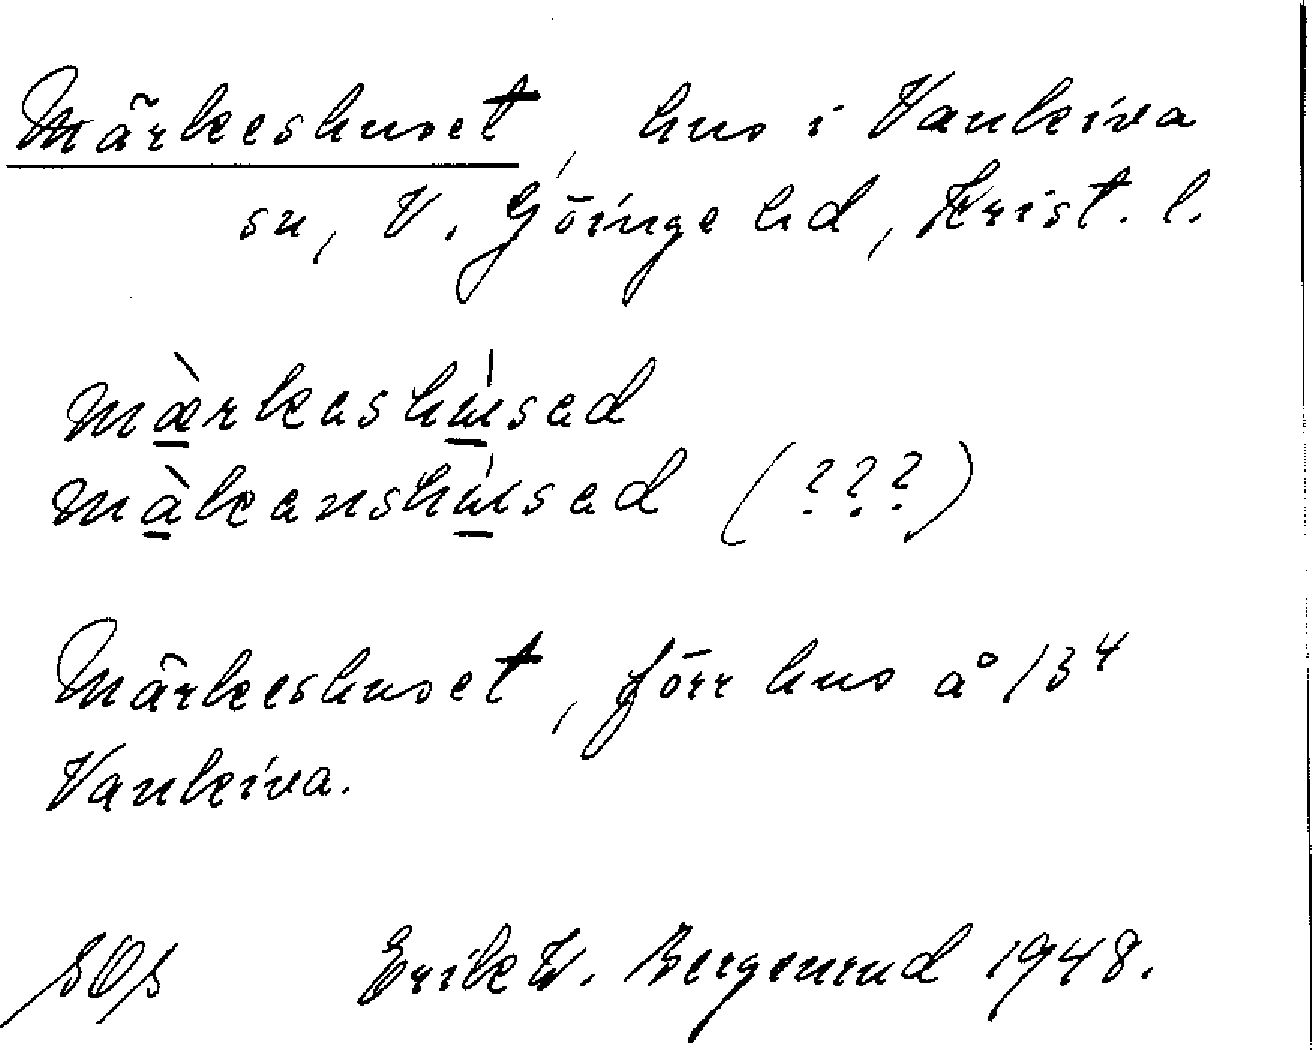 Märkeshuset, hus i Vankiva
sn, V. Göinge hd, Krist. l.
mæ̀rkashúsad
màkanshúsad (???)
Märkeshuset, förr hus å 13⁴
Vankiva.
Erik W. Bergenrud 1948.